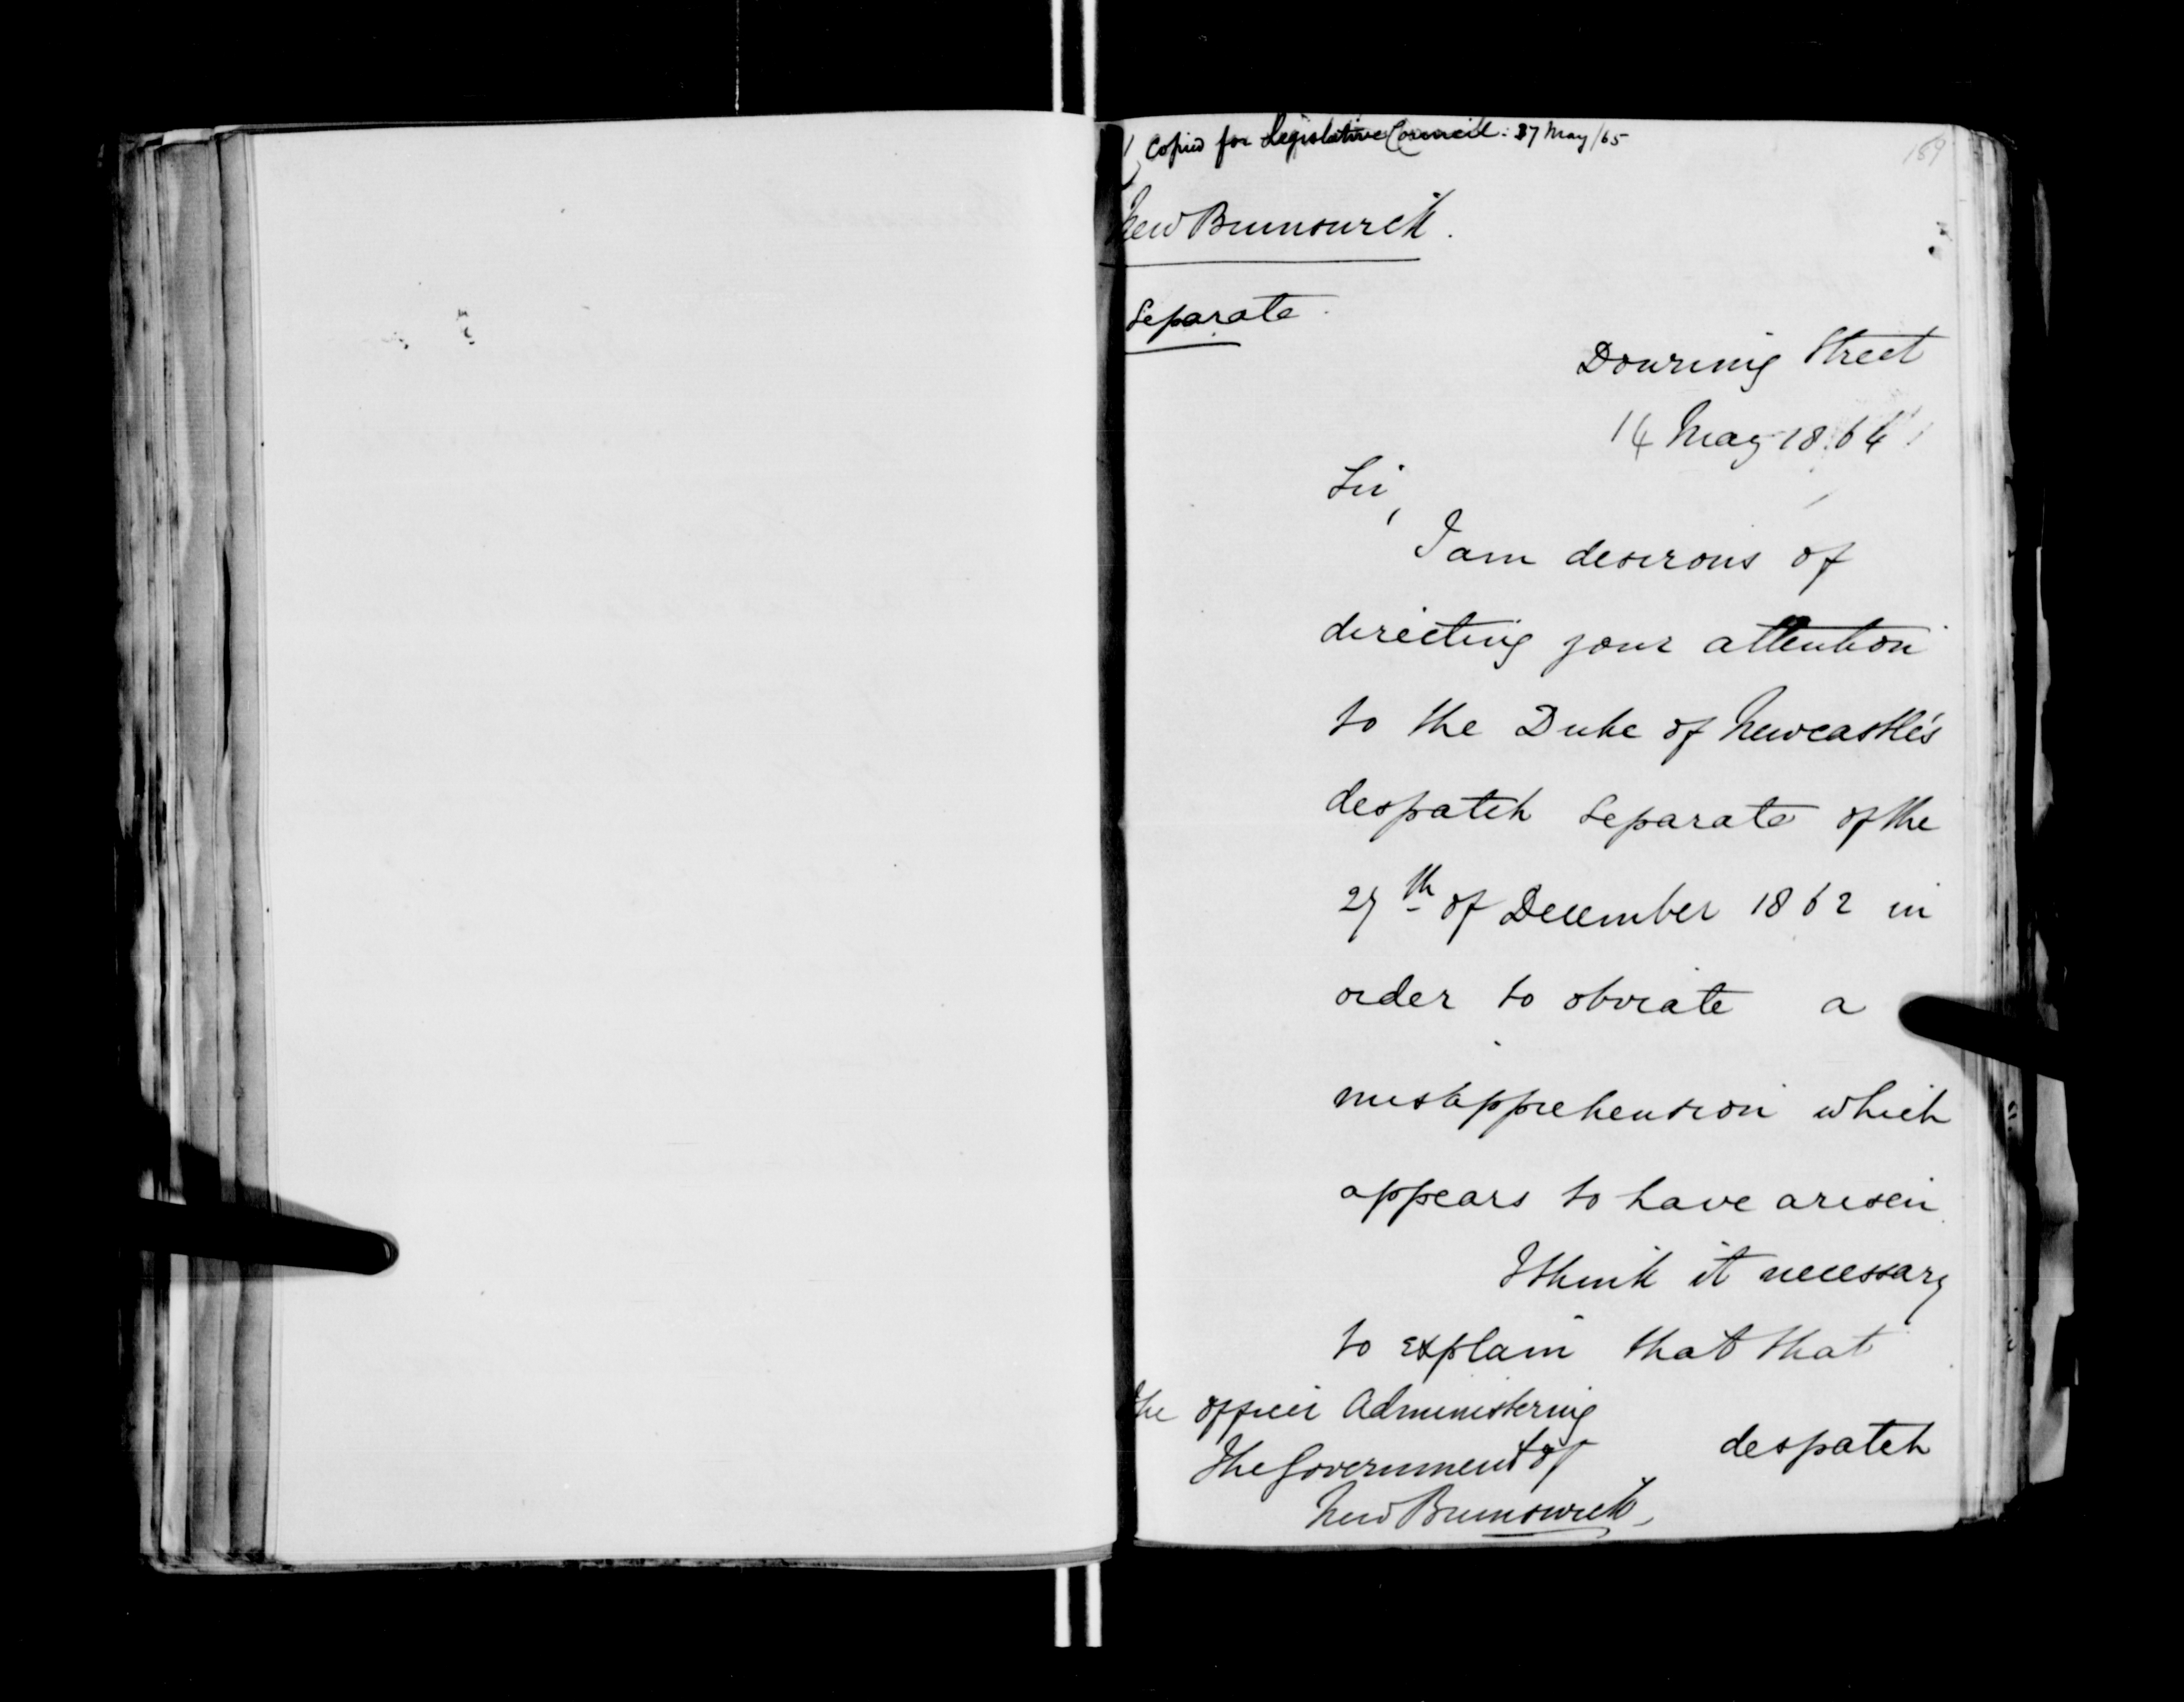 Copied for Legislative Council: 37 May/65
159
New Brunswick.
Separate.
Downing Street
14 May 1864
Sir,
I am desirous of
directing your attention
to the Duke of Newcastle's
despatch Separate of the
27th of December 1862 in
order to obviate a
misapprehension which
appears to have arisen
I think it necessary
to explain that that
despatch
The Officer Administering
The Government of
New Brunswick,